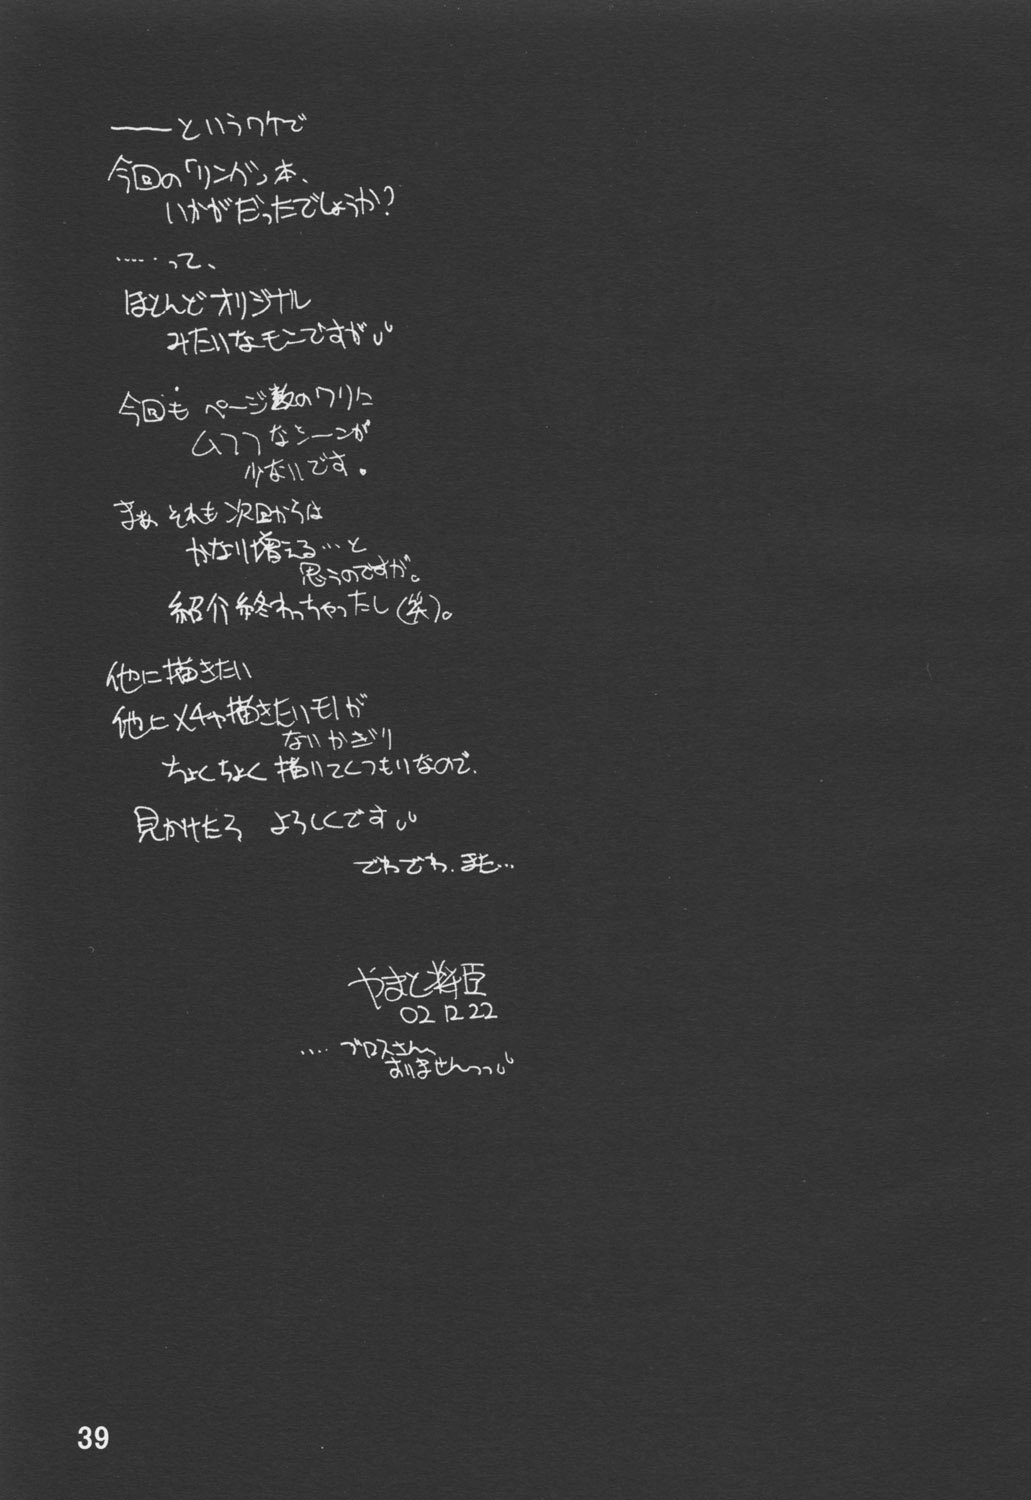 ——というワケで
今回の「リンガ」本、
いかがだったでしょうか?
‥‥‥って、
ほとんどオリジナル
みたいなモンですが
今回も ページ数のワリに
ムフフなシーンが
少ないです。
まぁ それも次回からは
かなり増える…と
思うのですが。
紹介終わっちゃったし(笑)。
他に描きたい
他にメチャ描きたいモノが
ないかぎり
ちょくちょく描いてくつもりなので、
見かけたら よろしくです
でわでわ、また…
やまと
02 12 22
‥‥ ブロスさん、
おりませんっっ
39